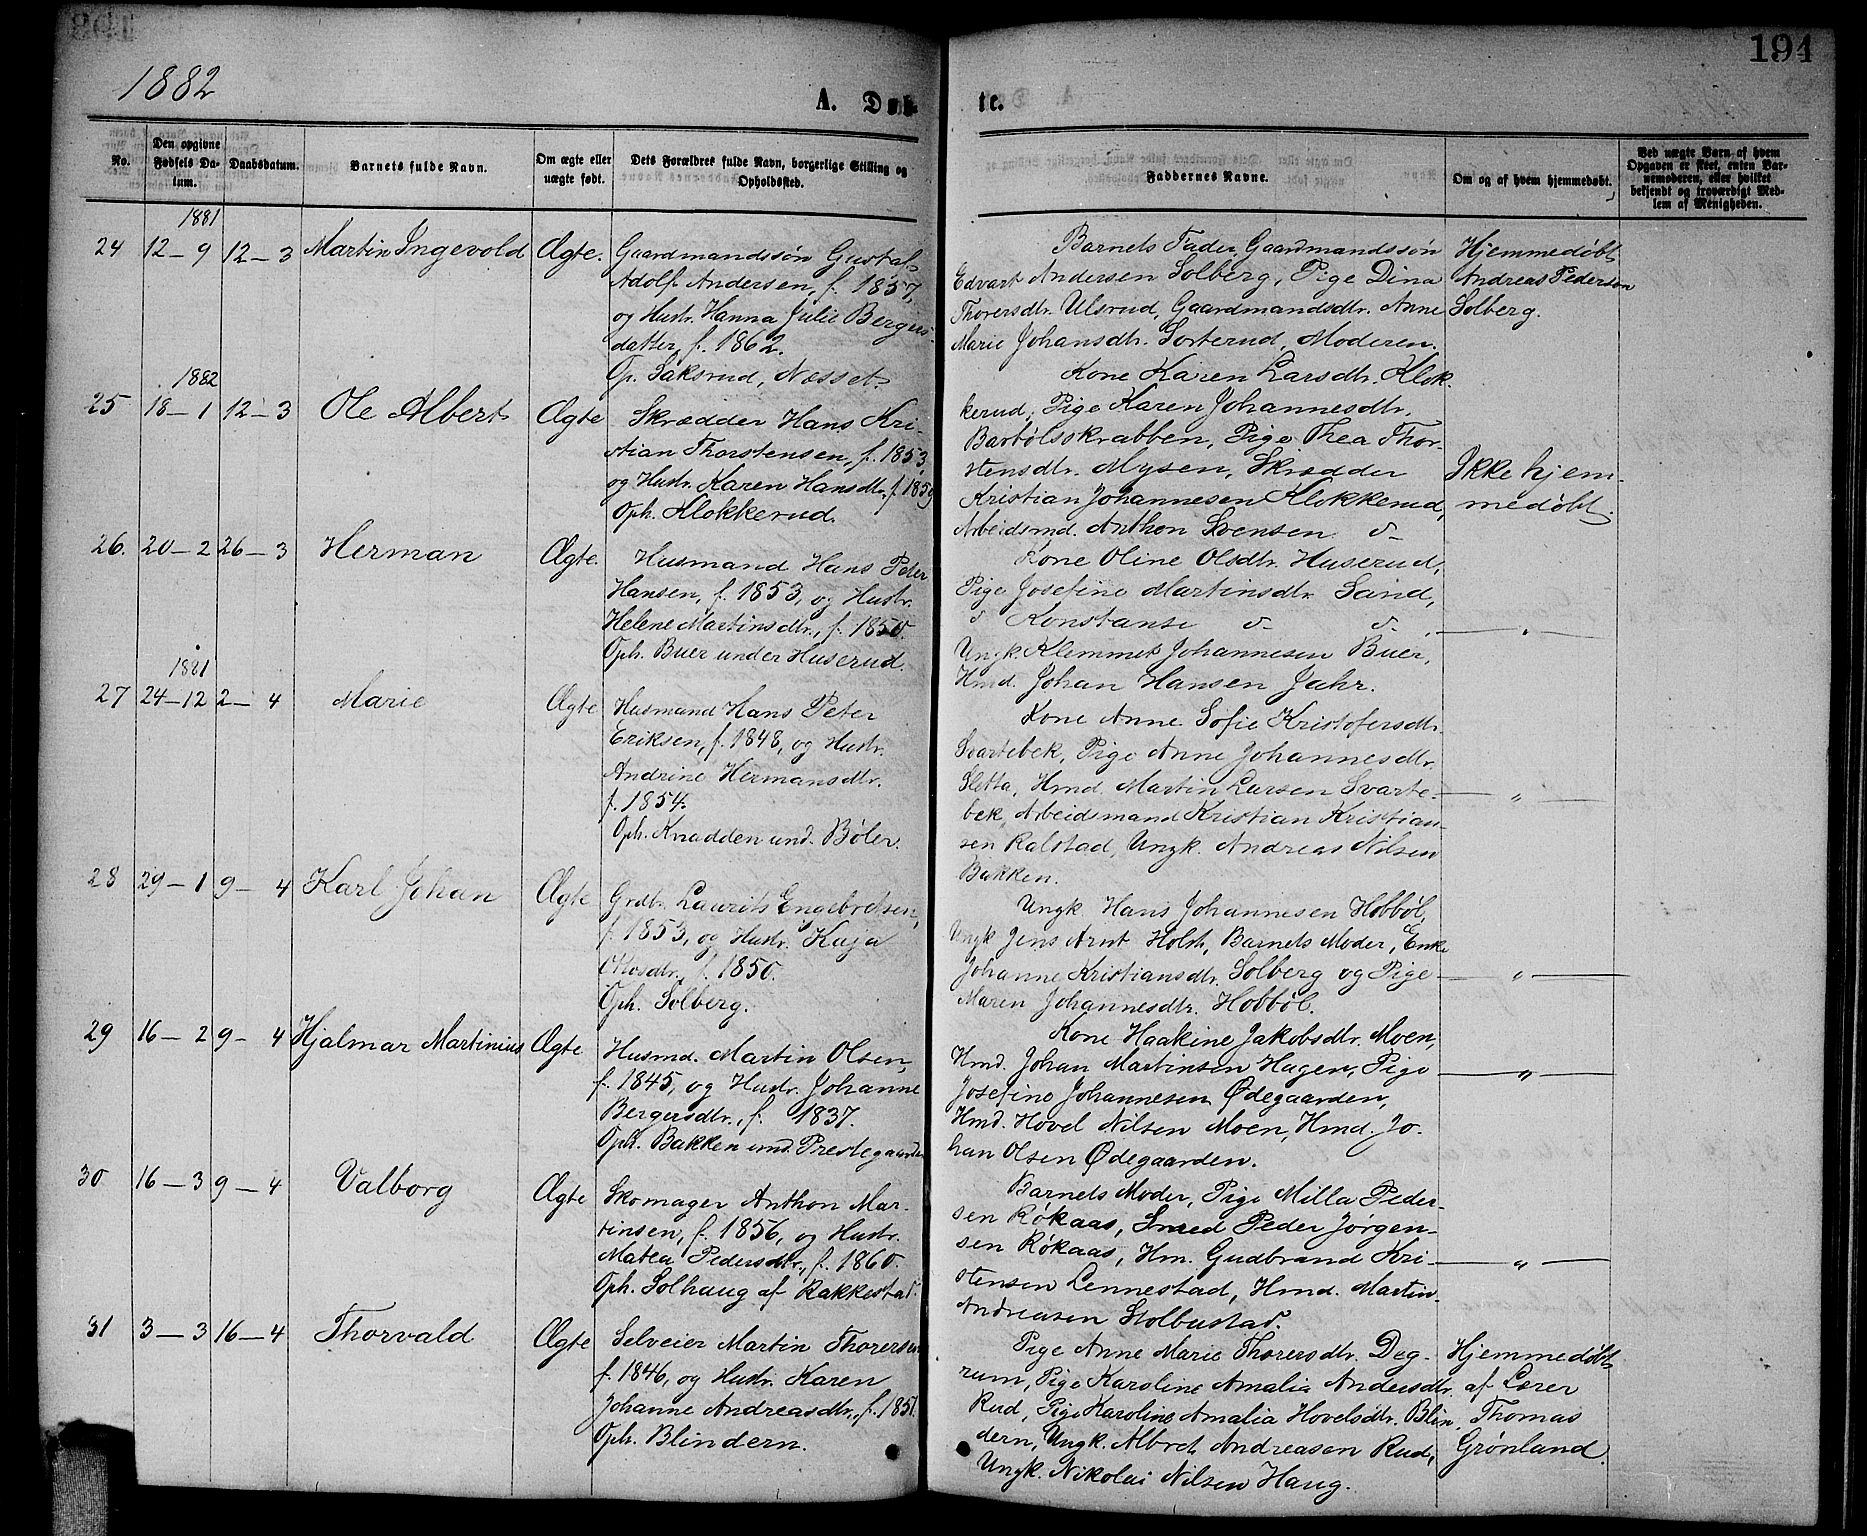 194
1882
A. Døb-
te.
No.
Den opgivne
Fødsels Da-
tum.
Daabsdatum.
Barnets fulde Navn.
Om ægte eller
uægte født.
Dets Forældres fulde Navn, borgerlige Stilling og
Opholdssted.
Faddernes Navne.
Om og af hvem hjemmedøbt.
Ved uægte Barn af hvem
Opgaven er skeet, enten Bar-
nemoderen, eller hvilket
bekjendt og troværdigt Med-
lem af Menigheden.
1881
24 12-9 12-3 Martin Ingevold Ægte.
Gaardmandssøn Gustaf
Adolf Andersen, f. 1857,
og Hustr. Hanna Julie Bergers-
datter, f. 1862.
Op. Saksrud, Næsset.
Barnets Fader, Gaardmandssøn
Edvart Andersen Solberg, Pige Dina
Thorersdtr. Ulsrud, Gaardmandsdtr. Anne
Marie Johansdtr. Sorterud, Moderen.
Hjemmedøbt
Andreas Pederson
Solberg.
1882
25 18-1 12-3 Ole Albert Ægte
Skrædder Hans Kri-
stian Thorstensen, f. 1853,
og Hustr. Karen Hansdtr., f. 1859
Oph. Klokkerud.
Kone Karen Larsdtr. Klok-
kerud, Pige Karen Johannesdtr.
Barbølsskrabben, Pige Thea Thor-
stensdtr. Mysen, Skrædder
Kristian Johannesen Klokkerud,
Arbeidsmd. Anthon Svensen d-
Ikke hjem-
medøbt.
26. 20-2 26-3 Herman Ægte.
Husmand Hans Peter
Hansen, f. 1853, og Hustr.
Helene Martinsdtr., f. 1850.
Oph. Buer under Huserud.
Kone Oline Olsdtr. Huserud,
Pige Josefine Martinsdtr. Sand,
d Konstanse d- d-,
Ungk. Klemmet Johannesen Buer,
Hmd. Johan Hansen Jahr.
— „ —
1881
27 24-12 2-4 Marie Ægte
Husmand Hans Peter
Eriksen, f. 1848, og Hustr.
Andrine Hermansdtr.
f. 1854.
Oph. Knadden und. Bøler.
Kone Anne Sofie Kristofersdtr.
Svartebek, Pige Anne Johannesdtr.
Sletta, Hmd. Martin Larsen Svarte-
bek, Arbeidsmand Kristian Kristian-
sen Ralstad, Ungk. Andreas Nilsen
Bakken.
— „ —
28 29-1 9-4 Karl Johan Ægte
Grdbr. Laurits Engebretsen,
f. 1853, og Hustr. Kaja
Olosdtr., f. 1850.
Oph. Solberg.
Ungk. Hans Johannesen Hobbøl,
Ungk Jens Arnt Holst, Barnets Moder, Enke
Johanne Kristiansdtr. Solberg og Pige
Maren Johannesdtr. Hobbøl.
— „ —
29 16-2 9-4 Hjalmar Martinius Ægte
Husmd. Martin Olsen,
f. 1845, og Hustr. Johanne
Bergersdtr., f. 1837.
Oph. Bakken und. Prestegaarden
Kone Haakine Jakobsdtr. Moen,
Hmd. Johan Martinsen Hagen, Pige
Josefine Johannesen Ødegaarden,
Hmd. Hovel Nilsen Moen, Hmd. Jo-
han Olsen Ødegaarden.
— „ —
30 16-3 9-4 Valborg Ægte
Skomager Anthon Mar-
tinsen, f. 1856, og Hustr.
Matea Pedersdtr., f. 1860.
Oph. Solhaug af Rakkestad.
Barnets Moder, Pige Milla Peder-
sen Røkaas, Smed Peder Jørgen-
sen Røkaas, Hm. Gudbrand Kri-
stensen Lennestad, Hmd. Martin
Andreasen Stolbustad.
— „ —
31 3-3 16-4 Thorvald Ægte
Selveier Martin Thorersen
f. 1846, og Hustr. Karen
Johanne Andreasdtr., f. 1851.
Oph. Blindern.
Pige Anne Marie Thorersdtr. Deg-
rum, Pige Karoline Amalia Andersdtr.
Rud, Pige Karoline Amalia Hovelsdtr. Blin-
dern, Ungk. Albret Andreasen Rud,
Ungk. Nikolai Nilsen Haug.
Hjemmedøbt
af Lærer
Thomas
Grønlund.